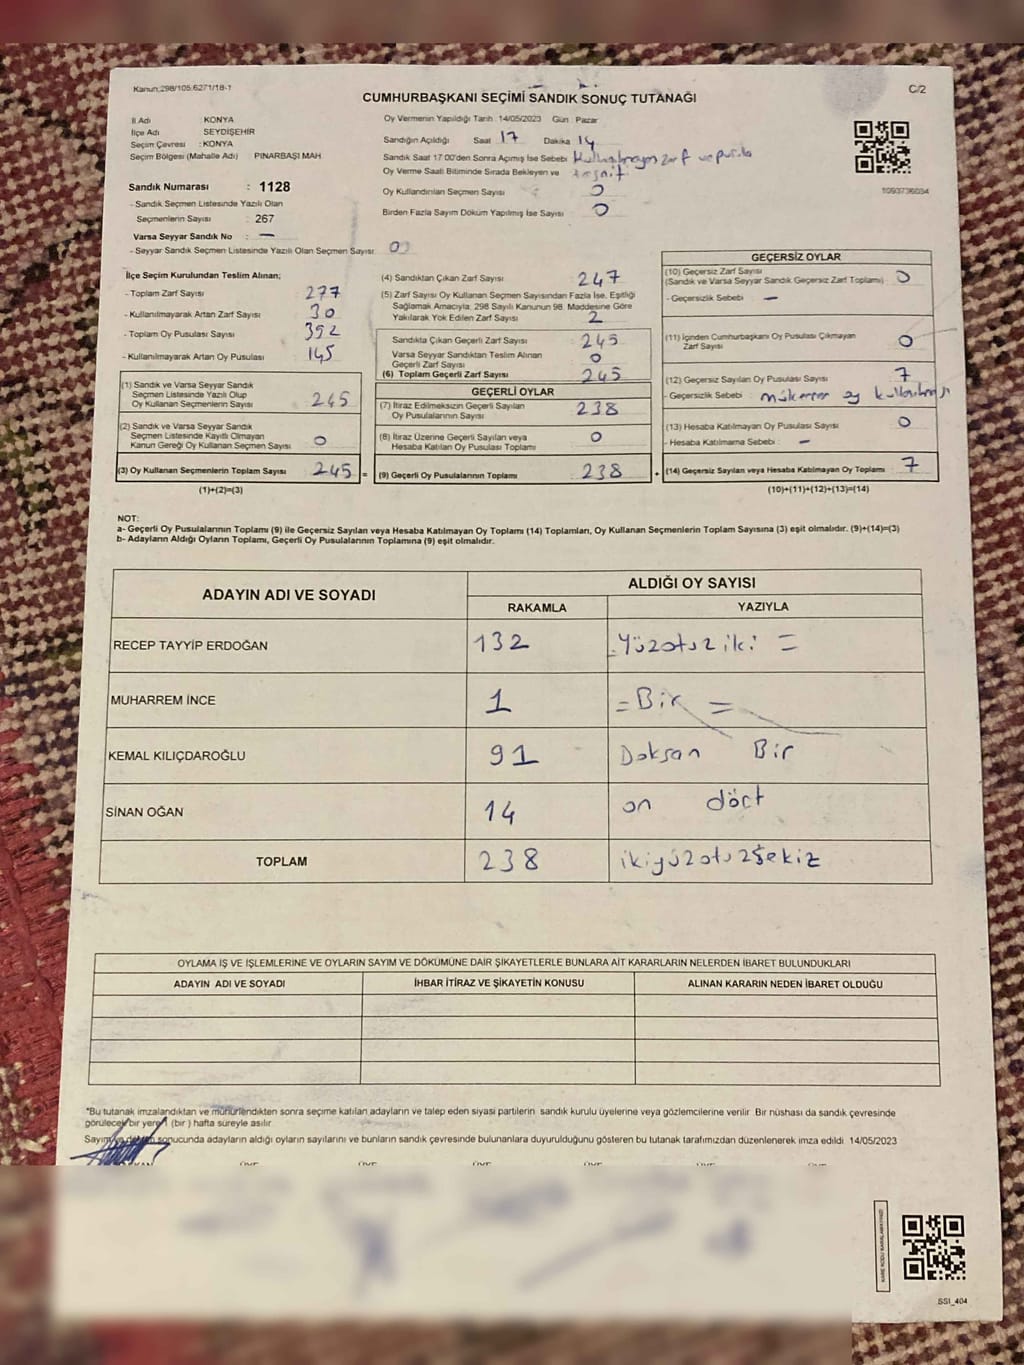 Kanun:298/105;6271/18-1
C/2
CUMHURBAŞKANI SEÇİMİ SANDIK SONUÇ TUTANAĞI
İl Adı : KONYA
İlçe Adı SEYDİŞEHİR
Seçim Çevresi : KONYA
Seçim Bölgesi (Mahalle Adı) : PINARBAŞI MAH
Sandık Numarası : 1128
- Sandık Seçmen Listesinde Yazılı Olan
Seçmenlerin Sayısı : 267
Varsa Seyyar Sandık No : —
- Seyyar Sandık Seçmen Listesinde Yazılı Olan Seçmen Sayısı: 0
Oy Vermenin Yapıldığı Tarih :14/05/2023 Gün : Pazar
Sandığın Açıldığı Saat 17 Dakika 14
Sandık Saat 17:00'den Sonra Açımış İse Sebebi Kullanılmayan zarf ve pusula
Oy Verme Saati Bitiminde Sırada Bekleyen ve tasnif
Oy Kullandırılan Seçmen Sayısı : 0
Birden Fazla Sayım Döküm Yapılmış İse Sayısı : 0
1093736034
İlçe Seçim Kurulundan Teslim Alınan;
- Toplam Zarf Sayısı : 277
- Kullanılmayarak Artan Zarf Sayısı : 30
- Toplam Oy Pusulası Sayısı : 392
- Kullanılmayarak Artan Oy Pusulası : 145
(1) Sandık ve Varsa Seyyar Sandık
Seçmen Listesinde Yazılı Olup
Oy Kullanan Seçmenlerin Sayısı : 245
(2) Sandık ve Varsa Seyyar Sandık
Seçmen Listesinde Kayıtlı Olmayan
Kanun Gereği Oy Kullanan Seçmen Sayısı : 0
(3) Oy Kullanan Seçmenlerin Toplam Sayısı : 245 =
(1)+(2)=(3)
(4) Sandıktan Çıkan Zarf Sayısı : 247
(5) Zarf Sayısı Oy Kullanan Seçmen Sayısından Fazla İse, Eşitliği
Sağlamak Amacıyla; 298 Sayılı Kanunun 98. Maddesine Göre
Yakılarak Yok Edilen Zarf Sayısı : 2
Sandıkta Çıkan Geçerli Zarf Sayısı : 245
Varsa Seyyar Sandıktan Teslim Alınan
Geçerli Zarf Sayısı : 0
(6) Toplam Geçerli Zarf Sayısı : 245
GEÇERLİ OYLAR
(7) İtiraz Edilmeksizin Geçerli Sayılan
Oy Pusulalarının Sayısı : 238
(8) İtiraz Üzerine Geçerli Sayılan veya
Hesaba Katılan Oy Pusulaları Toplamı : 0
(9) Geçerli Oy Pusulalarının Toplamı : 238 +
GEÇERSİZ OYLAR
(10) Geçersiz Zarf Sayısı
(Sandık ve Varsa Seyyar Sandık Geçersiz Zarf Toplamı) : 0
- Geçersizlik Sebebi : —
(11) İçinden Cumhurbaşkanı Oy Pusulası Çıkmayan
Zarf Sayısı : 0
(12) Geçersiz Sayılan Oy Pusulası Sayısı : 7
- Geçersizlik Sebebi : mükerrer oy kullanılmış
(13) Hesaba Katılmayan Oy Pusulası Sayısı : 0
- Hesaba Katılmama Sebebi : —
(14) Geçersiz Sayılan veya Hesaba Katılmayan Oy Toplamı : 7
(10)+(11)+(12)+(13)=(14)
NOT:
a- Geçerli Oy Pusulalarının Toplamı (9) ile Geçersiz Sayılan veya Hesaba Katılmayan Oy Toplamı (14) Toplamları, Oy Kullanan Seçmenlerin Toplam Sayısına (3) eşit olmalıdır. (9)+(14)=(3)
b- Adayların Aldığı Oyların Toplamı, Geçerli Oy Pusulalarının Toplamına (9) eşit olmalıdır.
ADAYIN ADI VE SOYADI ALDIĞI OY SAYISI
RAKAMLA YAZIYLA
RECEP TAYYİP ERDOĞAN 132 Yüzotuziki =
MUHARREM İNCE 1 = Bir =
KEMAL KILIÇDAROĞLU 91 Doksan Bir
SİNAN OĞAN 14 on dört
TOPLAM 238 ikiyüzotuzSekiz
OYLAMA İŞ VE İŞLEMLERİNE VE OYLARIN SAYIM VE DÖKÜMÜNE DAİR ŞİKAYETLERLE BUNLARA AİT KARARLARIN NELERDEN İBARET BULUNDUKLARI
ADAYIN ADI VE SOYADI İHBAR İTİRAZ VE ŞİKAYETİN KONUSU ALINAN KARARIN NEDEN İBARET OLDUĞU
*Bu tutanak imzalandıktan ve mühürlendikten sonra seçime katılan adayların ve talep eden siyasi partilerin sandık kurulu üyelerine veya gözlemcilerine verilir. Bir nüshası da sandık çevresinde
görülecek bir yere 1 (bir ) hafta süreyle asılır.
Sayım ve döküm sonucunda adayların aldığı oyların sayılarını ve bunların sandık çevresinde bulunanlara duyurulduğunu gösteren bu tutanak tarafımızdan düzenlenerek imza edildi. 14/05/2023
SSI_404